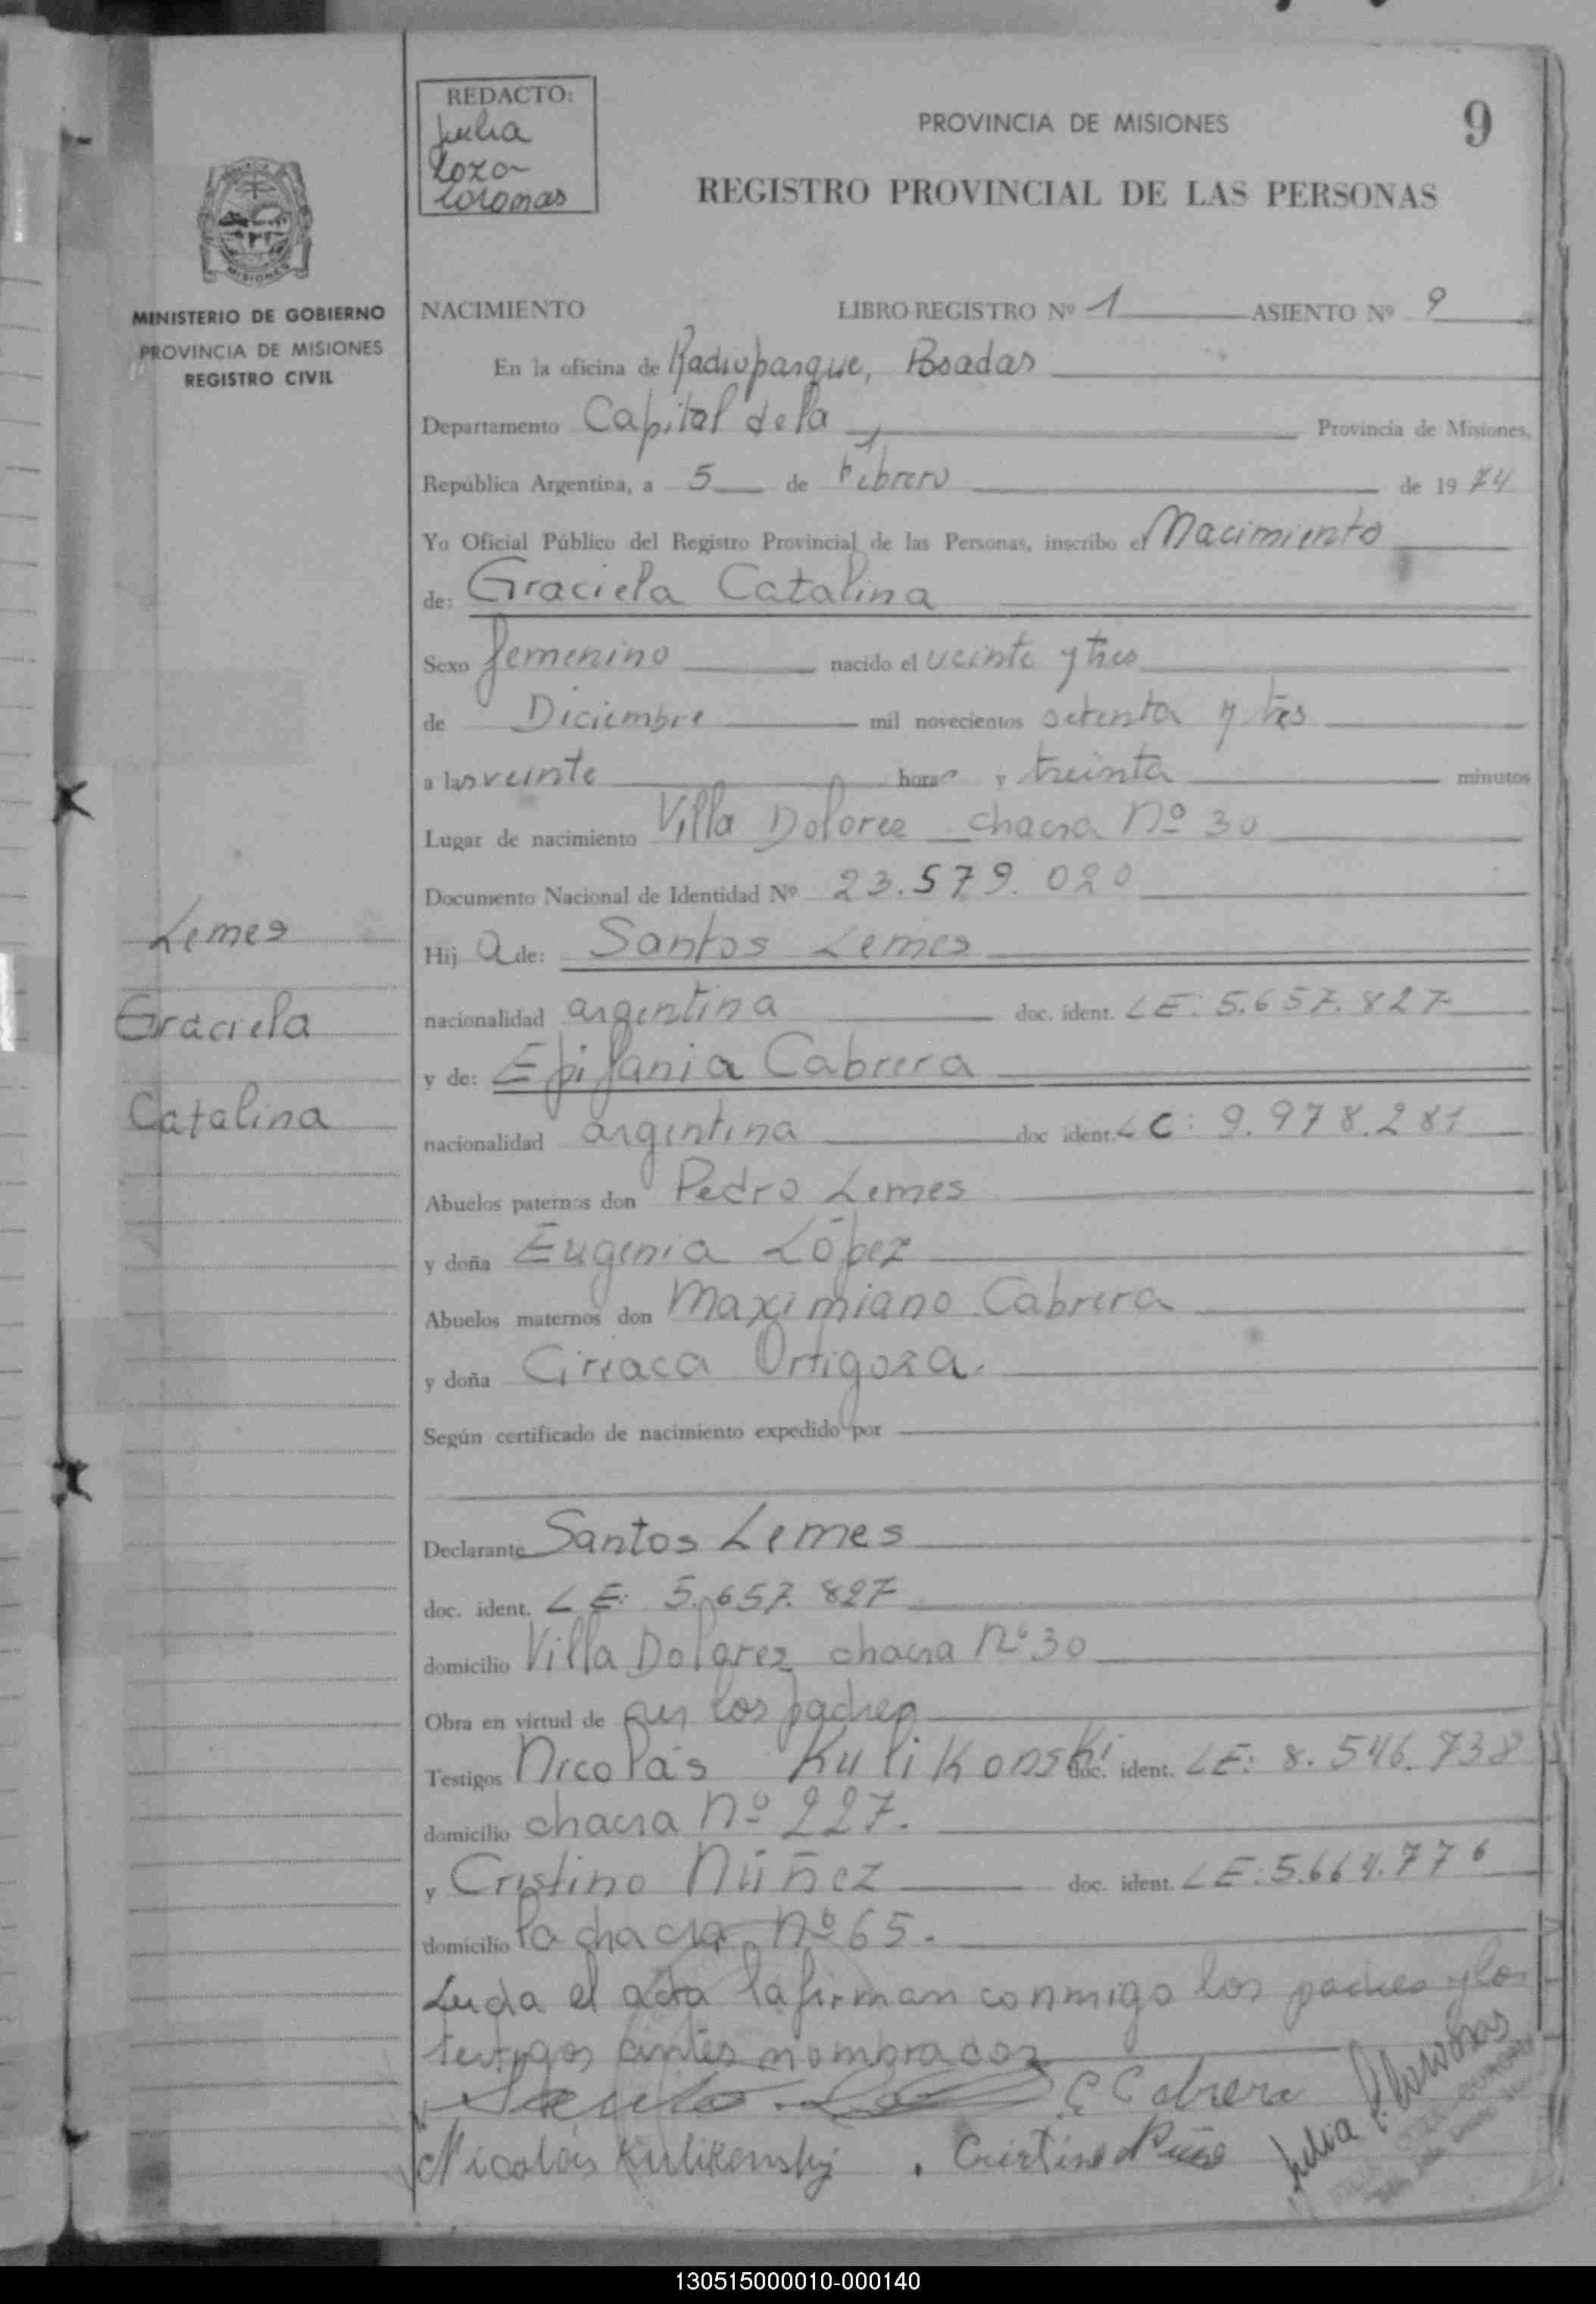 REDACTO:
Julia
Coronas
PROVINCIA DE MISIONES
9
REGISTRO PROVINCIAL DE LAS PERSONAS
MISIONES
MINISTERIO DE GOBIERNO
PROVINCIA DE MISIONES
REGISTRO CIVIL
NACIMIENTO LIBRO REGISTRO Nº 1 ASIENTO Nº 9
En la oficina de Radioparque, Posadas
Departamento Capital de la Provincia de Misiones,
República Argentina, a 5 de Febrero de 1974
Yo Oficial Público del Registro Provincial de las Personas, inscribo el Nacimiento
de: Graciela Catalina
Sexo femenino nacido el veinte y tres
de Diciembre mil novecientos setenta y tres
a las veinte horas y treinta minutos
Lugar de nacimiento Villa Dolores chacra Nº 30
Documento Nacional de Identidad Nº 23.579.020
Lemes
Graciela
Catalina
Hij a de: Santos Lemes
nacionalidad argentina doc. ident. LE: 5.657.827
y de: Epifania Cabrera
nacionalidad argentina doc ident. LC: 9.978.281
Abuelos paternos don Pedro Lemes
y doña Eugenia López
Abuelos maternos don Maximiano Cabrera
y doña Ciriaca Ortigoza.
Según certificado de nacimiento expedido por
Declarante Santos Lemes
doc. ident. LE: 5.657.827
domicilio Villa Dolores chacra Nº 30
Obra en virtud de ser los padres
Testigos Nicolás Kulikonski doc. ident. LE: 8.546.738
domicilio chacra Nº 227.
y Cristino Núñez doc. ident. LE: 5.664.776
domicilio la chacra Nº 65.
Leida el acta la firman conmigo los padres y los
testigos antes nombrados
E Cabrera
Nicolás Kulikonski . Cristino Núñe
Julia
130515000010-000140